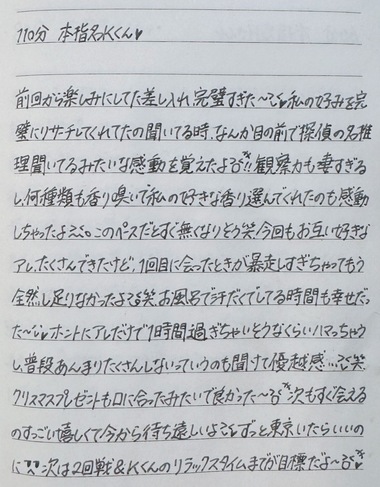 110分 本指名Kくん♥
前回から楽しみにしてた差し入れ、完璧すぎた〜♥私の好みを完
璧にリサーチしてくれてたの聞いてる時、なんか目の前で探偵の名推
理聞いてるみたいな感動を覚えたよ!!観察力も凄すぎる
し、何種類も香り嗅いで私の好きな香り選んでくれたのも感動
しちゃったよ。このペースだとすぐ無くなりそう笑 今回もお互い好きな
アレ、たくさんできたけど、1回目に会ったときが暴走しすぎちゃってもう
全然し足りなかったよ笑 お風呂で汗だくでしてる時間も幸せだっ
た〜♥ホントにアレだけで1時間過ぎちゃいそうなくらいハマっちゃう
し、普段あんまりたくさんしないっていうのも聞けて優越感…笑
クリスマスプレゼントも口に合ったみたいで良かった〜 次もすぐ会える
のすっごい嬉しくて今から待ち遠しいよ♥ずっと東京いたらいいの
に 次は2回戦&Kくんのリラックスタイムまでが目標だよ〜